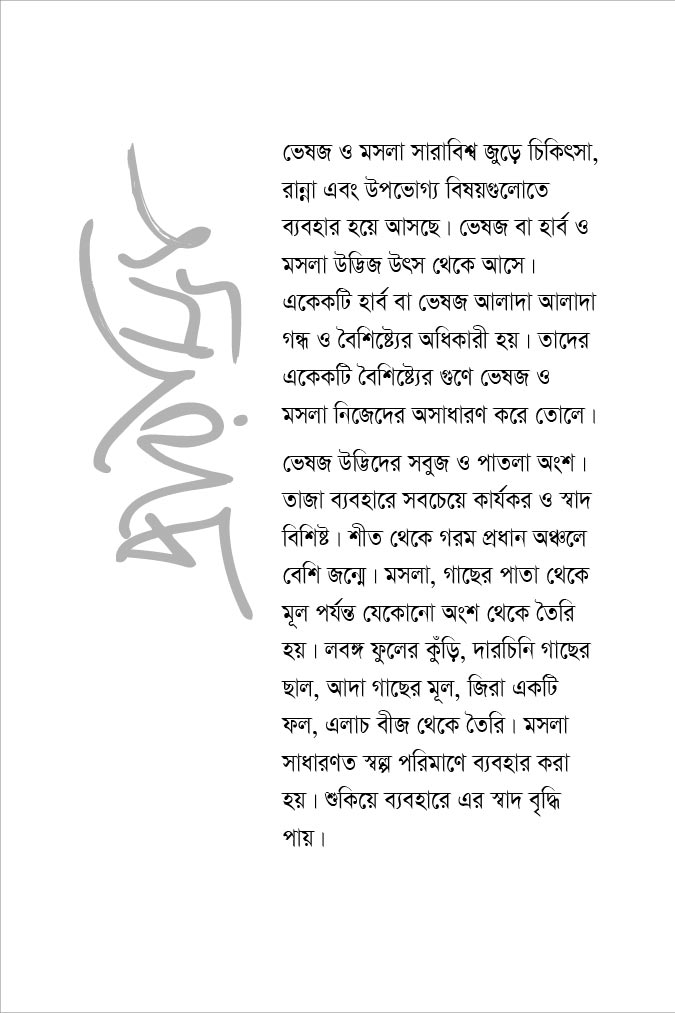 ভেষজ ও মসলা সারাবিশ্ব জুড়ে চিকিৎসা,
রান্না এবং উপভোগ্য বিষয়গুলোতে
ব্যবহার হয়ে আসছে। ভেষজ বা হার্ব ও
মসলা উদ্ভিজ উৎস থেকে আসে।
একেকটি হার্ব বা ভেষজ আলাদা আলাদা
গন্ধ ও বৈশিষ্ট্যের অধিকারী হয়। তাদের
একেকটি বৈশিষ্ট্যের গুণে ভেষজ ও
মসলা নিজেদের অসাধারণ করে তোলে।
ভেষজ উদ্ভিদের সবুজ ও পাতলা অংশ।
তাজা ব্যবহারে সবচেয়ে কার্যকর ও স্বাদ
বিশিষ্ট। শীত থেকে গরম প্রধান অঞ্চলে
বেশি জন্মে। মসলা, গাছের পাতা থেকে
মূল পর্যন্ত যেকোনো অংশ থেকে তৈরি
হয়। লবঙ্গ ফুলের কুঁড়ি, দারচিনি গাছের
ছাল, আদা গাছের মূল, জিরা একটি
ফল, এলাচ বীজ থেকে তৈরি। মসলা
সাধারণত স্বল্প পরিমাণে ব্যবহার করা
হয়। শুকিয়ে ব্যবহারে এর স্বাদ বৃদ্ধি
পায়।